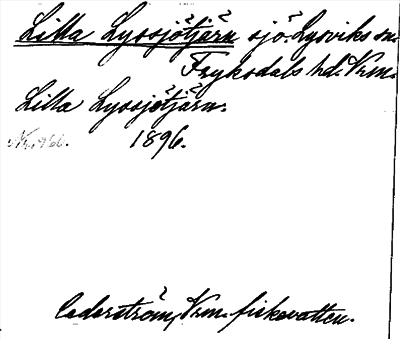 Lilla Lyssjötjärn sjö. Lysviks sn.
Fryksdals hd. Vrm.
Lilla Lyssjötjärn.
1896.
Cederström, Vrm. fiskevatten.